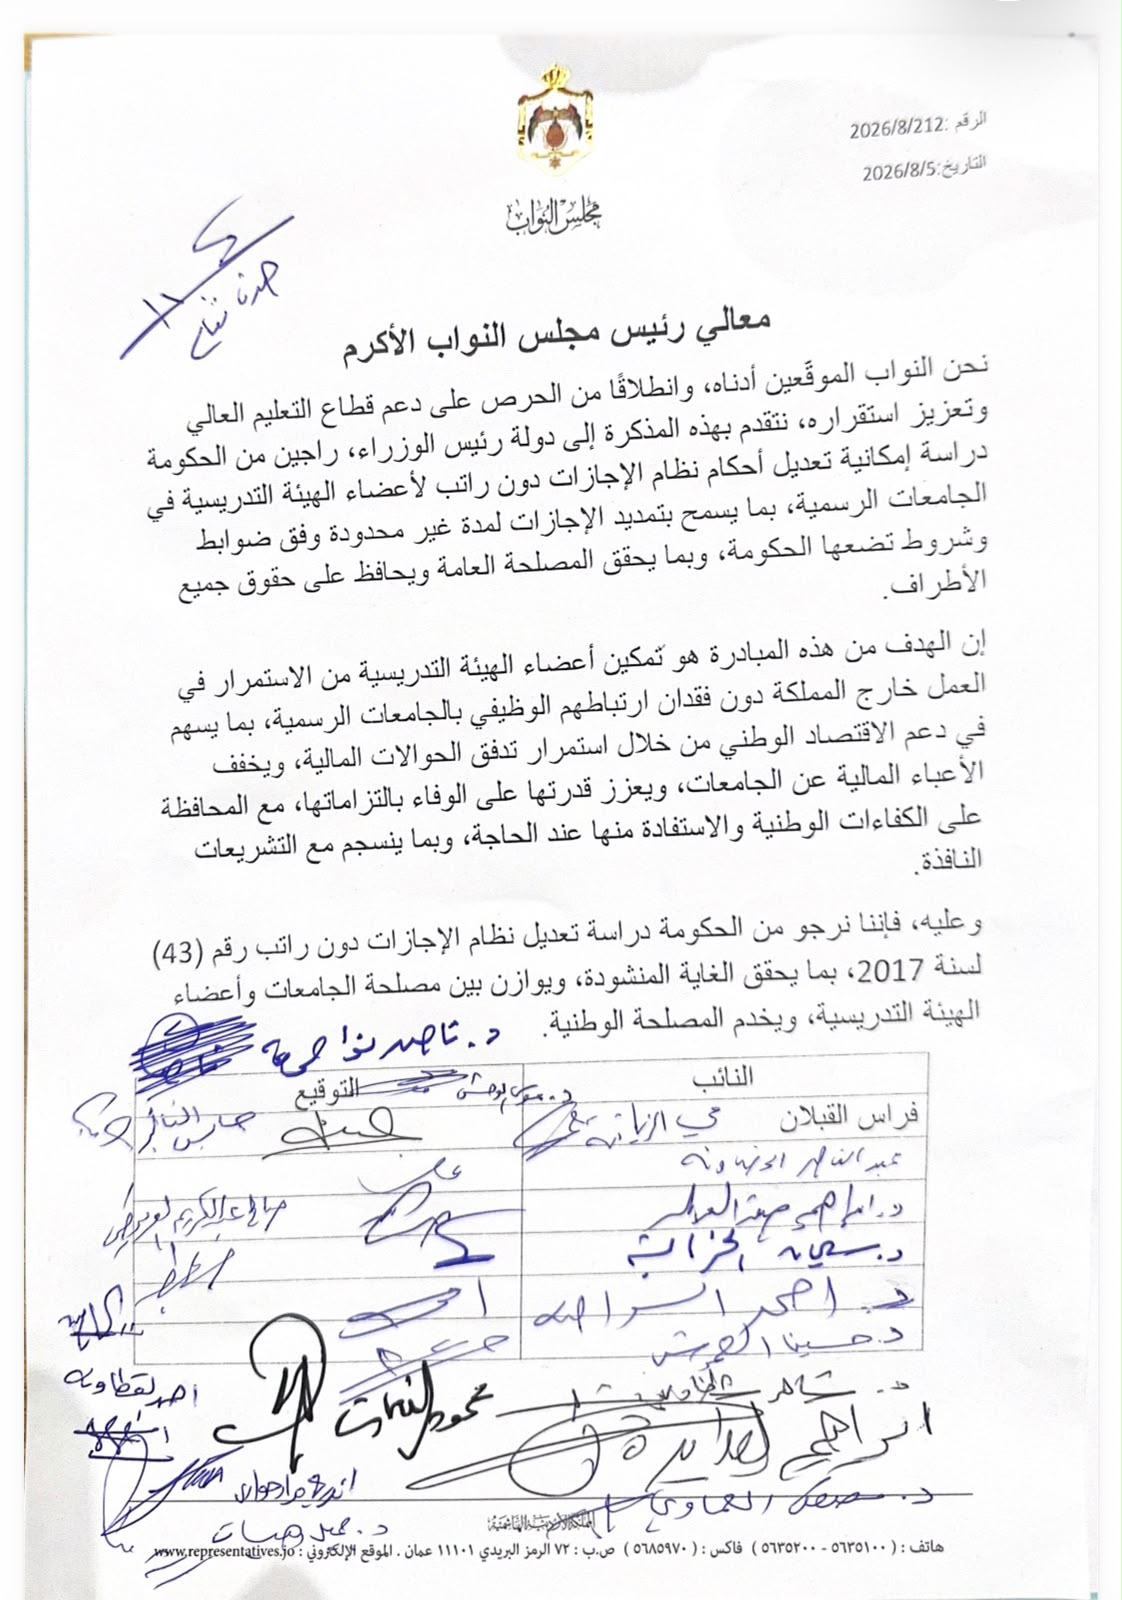 الرقم :2026/8/212
التاريخ:2026/8/5
مجلس النواب
معالي رئيس مجلس النواب الأكرم
نحن النواب الموقَّعين أدناه، وانطلاقًا من الحرص على دعم قطاع التعليم العالي
وتعزيز استقراره، نتقدم بهذه المذكرة إلى دولة رئيس الوزراء، راجين من الحكومة
دراسة إمكانية تعديل أحكام نظام الإجازات دون راتب لأعضاء الهيئة التدريسية في
الجامعات الرسمية، بما يسمح بتمديد الإجازات لمدة غير محدودة وفق ضوابط
وشروط تضعها الحكومة، وبما يحقق المصلحة العامة ويحافظ على حقوق جميع
الأطراف.
إن الهدف من هذه المبادرة هو تمكين أعضاء الهيئة التدريسية من الاستمرار في
العمل خارج المملكة دون فقدان ارتباطهم الوظيفي بالجامعات الرسمية، بما يسهم
في دعم الاقتصاد الوطني من خلال استمرار تدفق الحوالات المالية، ويخفف
الأعباء المالية عن الجامعات، ويعزز قدرتها على الوفاء بالتزاماتها، مع المحافظة
على الكفاءات الوطنية والاستفادة منها عند الحاجة، وبما ينسجم مع التشريعات
النافذة.
وعليه، فإننا نرجو من الحكومة دراسة تعديل نظام الإجازات دون راتب رقم (43)
لسنة 2017، بما يحقق الغاية المنشودة، ويوازن بين مصلحة الجامعات وأعضاء
الهيئة التدريسية، ويخدم المصلحة الوطنية.
د. ناصر نواصرة
النائب التوقيع
فراس القبلان
د. ابراهيم
د. سليمان الخرابشة
د. احمد السراحنة
د. حسين العموش
محمود النعيمات
احمد القطاونة
ابراهيم الصرايرة
د. مصطفى العماوي
المملكة الأردنية الهاشمية
هاتف : ( ٥٦٣٥١٠٠ - ٥٦٣٥٢٠٠ ) فاكس : ( ٥٦٨٥٩٧٠ ) ص.ب : ٧٢ الرمز البريدي ١١١٠١ عمان . الموقع الإلكتروني : www.representatives.jo